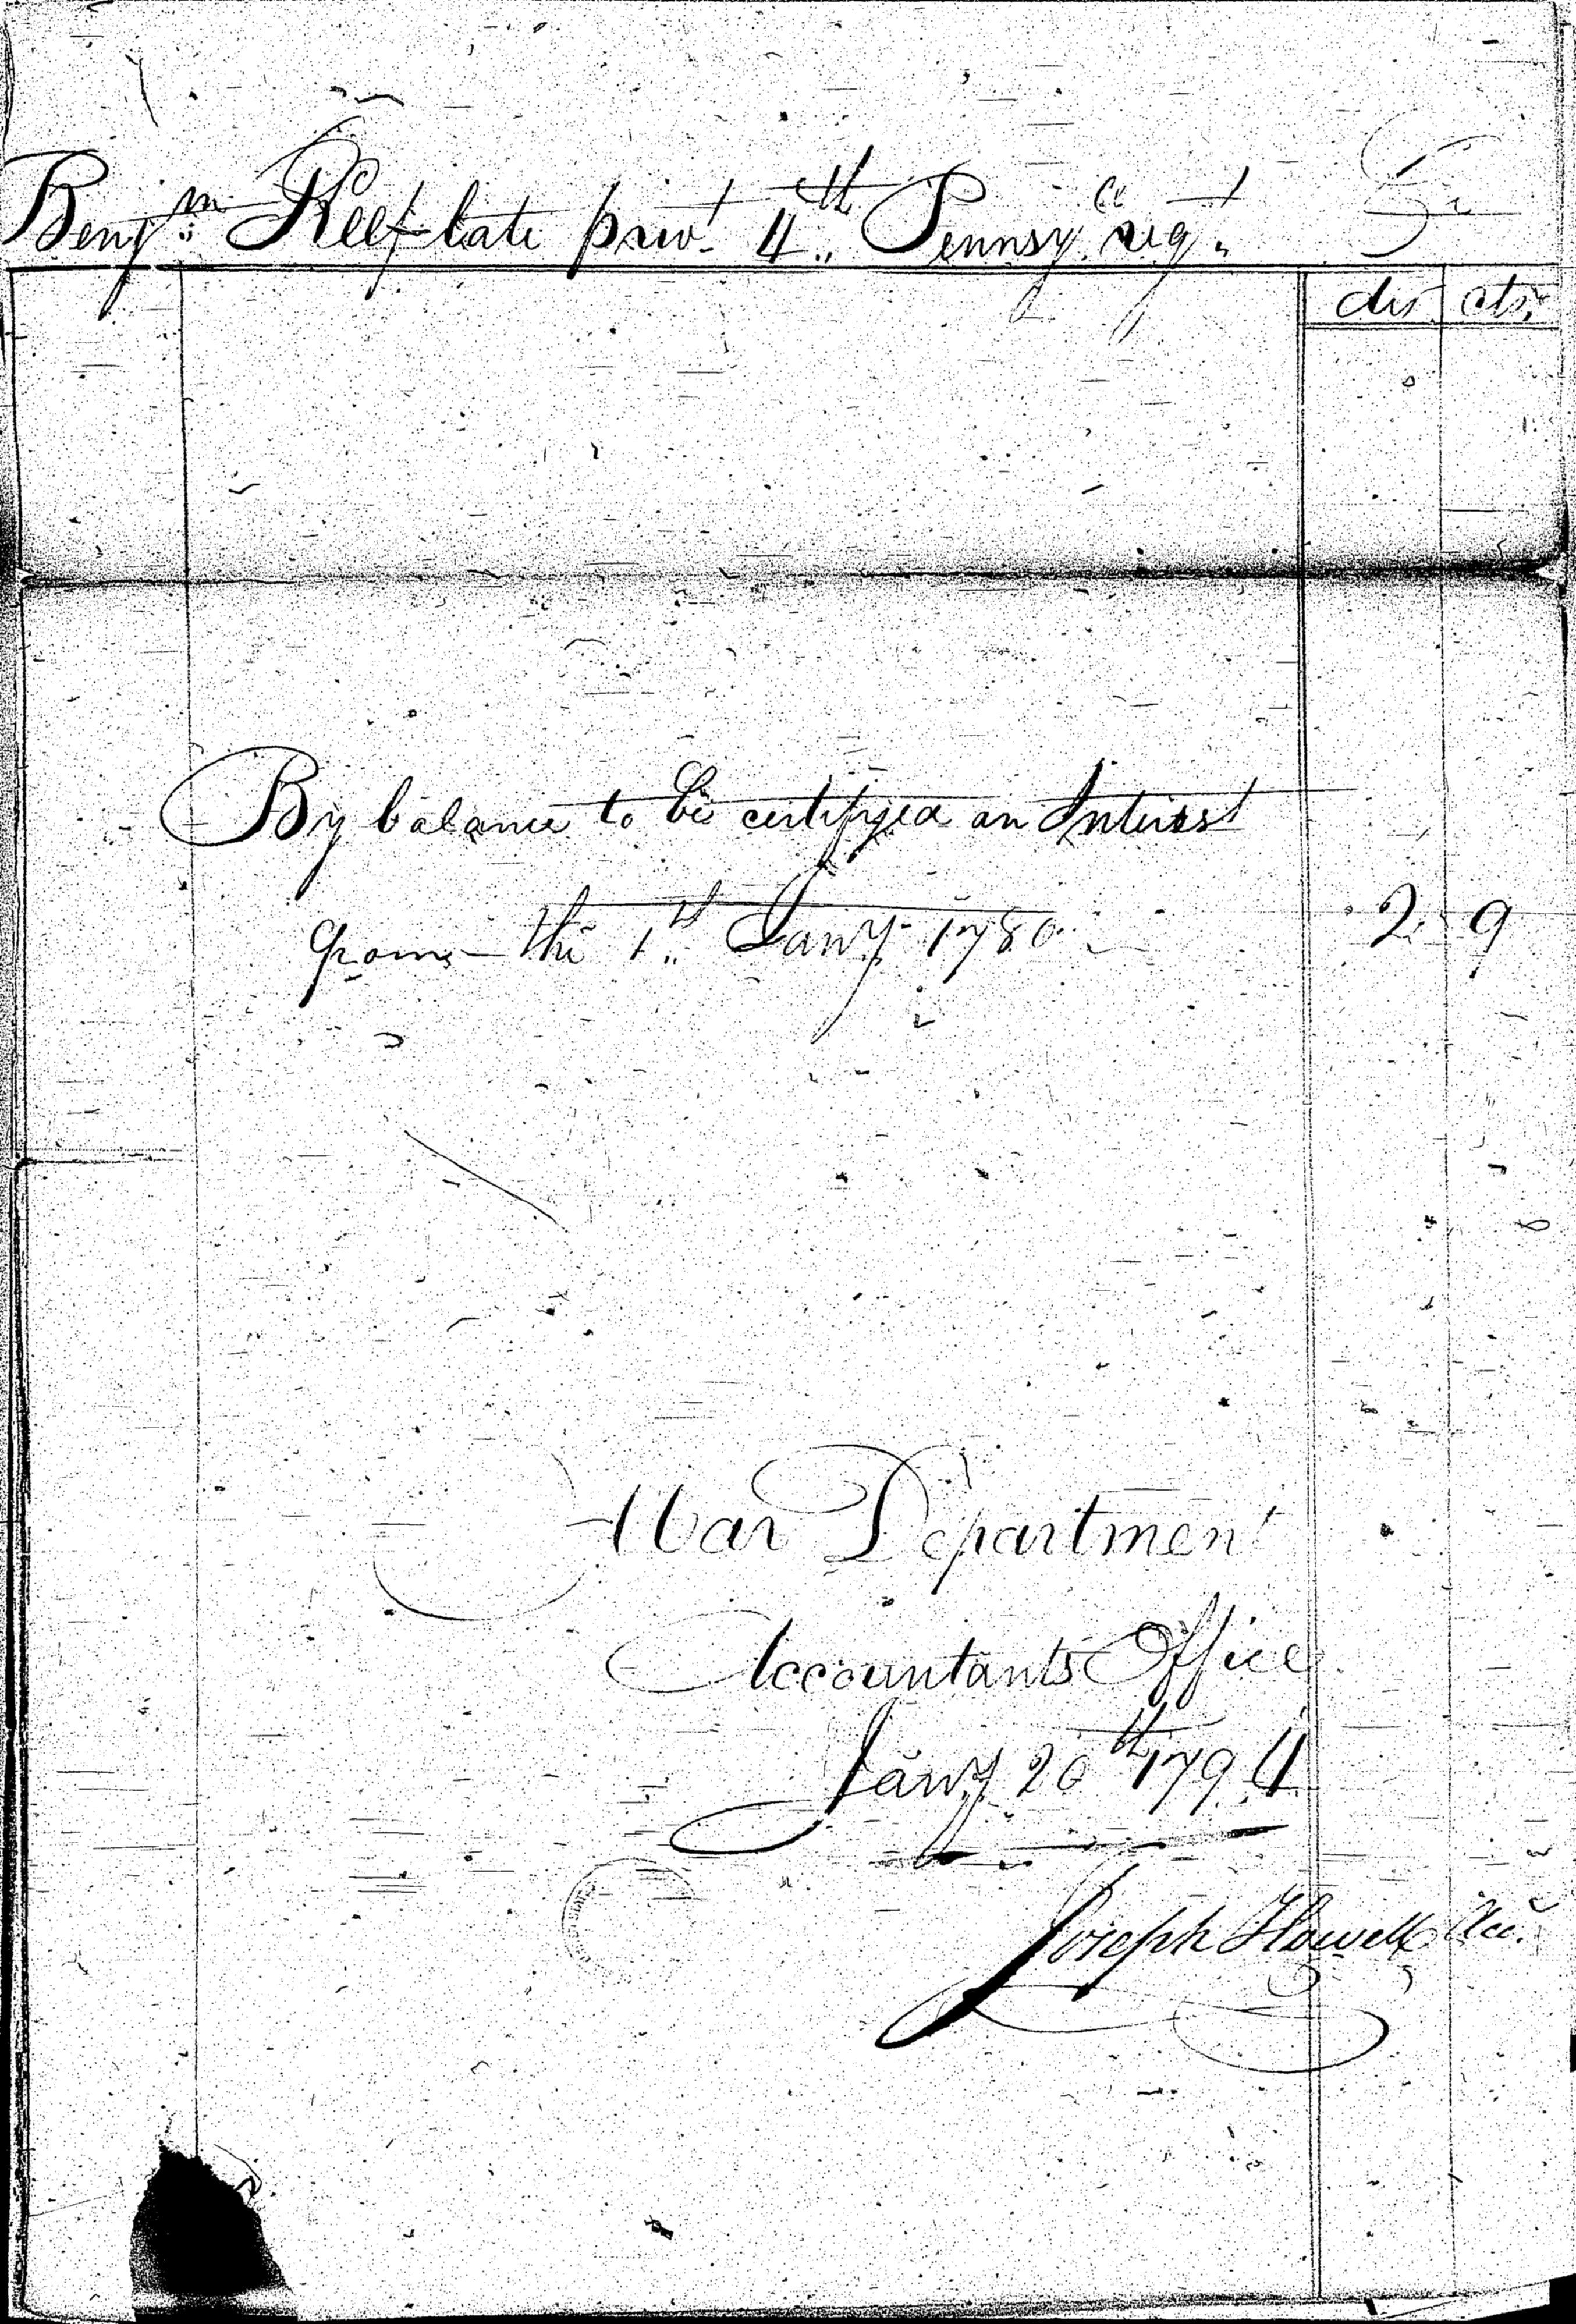 Benjm. Reef late privt. 4th. Pennsya. regt. Cr
dls cts.
By balance to be certifyed an Interest
from the 1st. Jany. 1780 2. 9
War Department
Accountants Office
Jany. 20th 1794
Joseph Howell Acct.